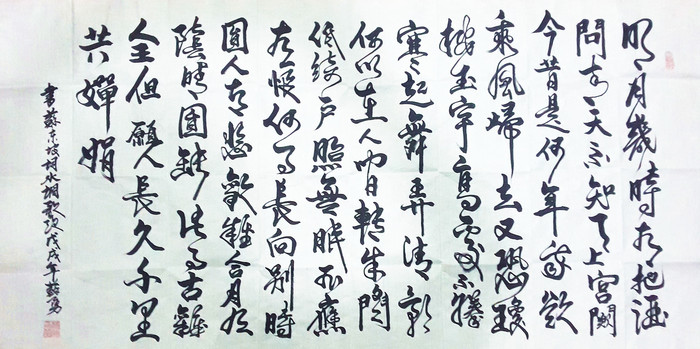 明月幾時有把酒
問青天不知天上宮闕
今昔是何年我欲
乘風歸去又恐瓊
樓玉宇高處不勝
寒起舞弄清影
何似在人間轉朱閣
低綺戶照無眠不應
有恨何事長向別時
圓人有悲歡離合月有
陰晴圓缺此事古難
全但願人長久千里
共嬋娟
書蘇東坡詞水調歌頭戊戌年